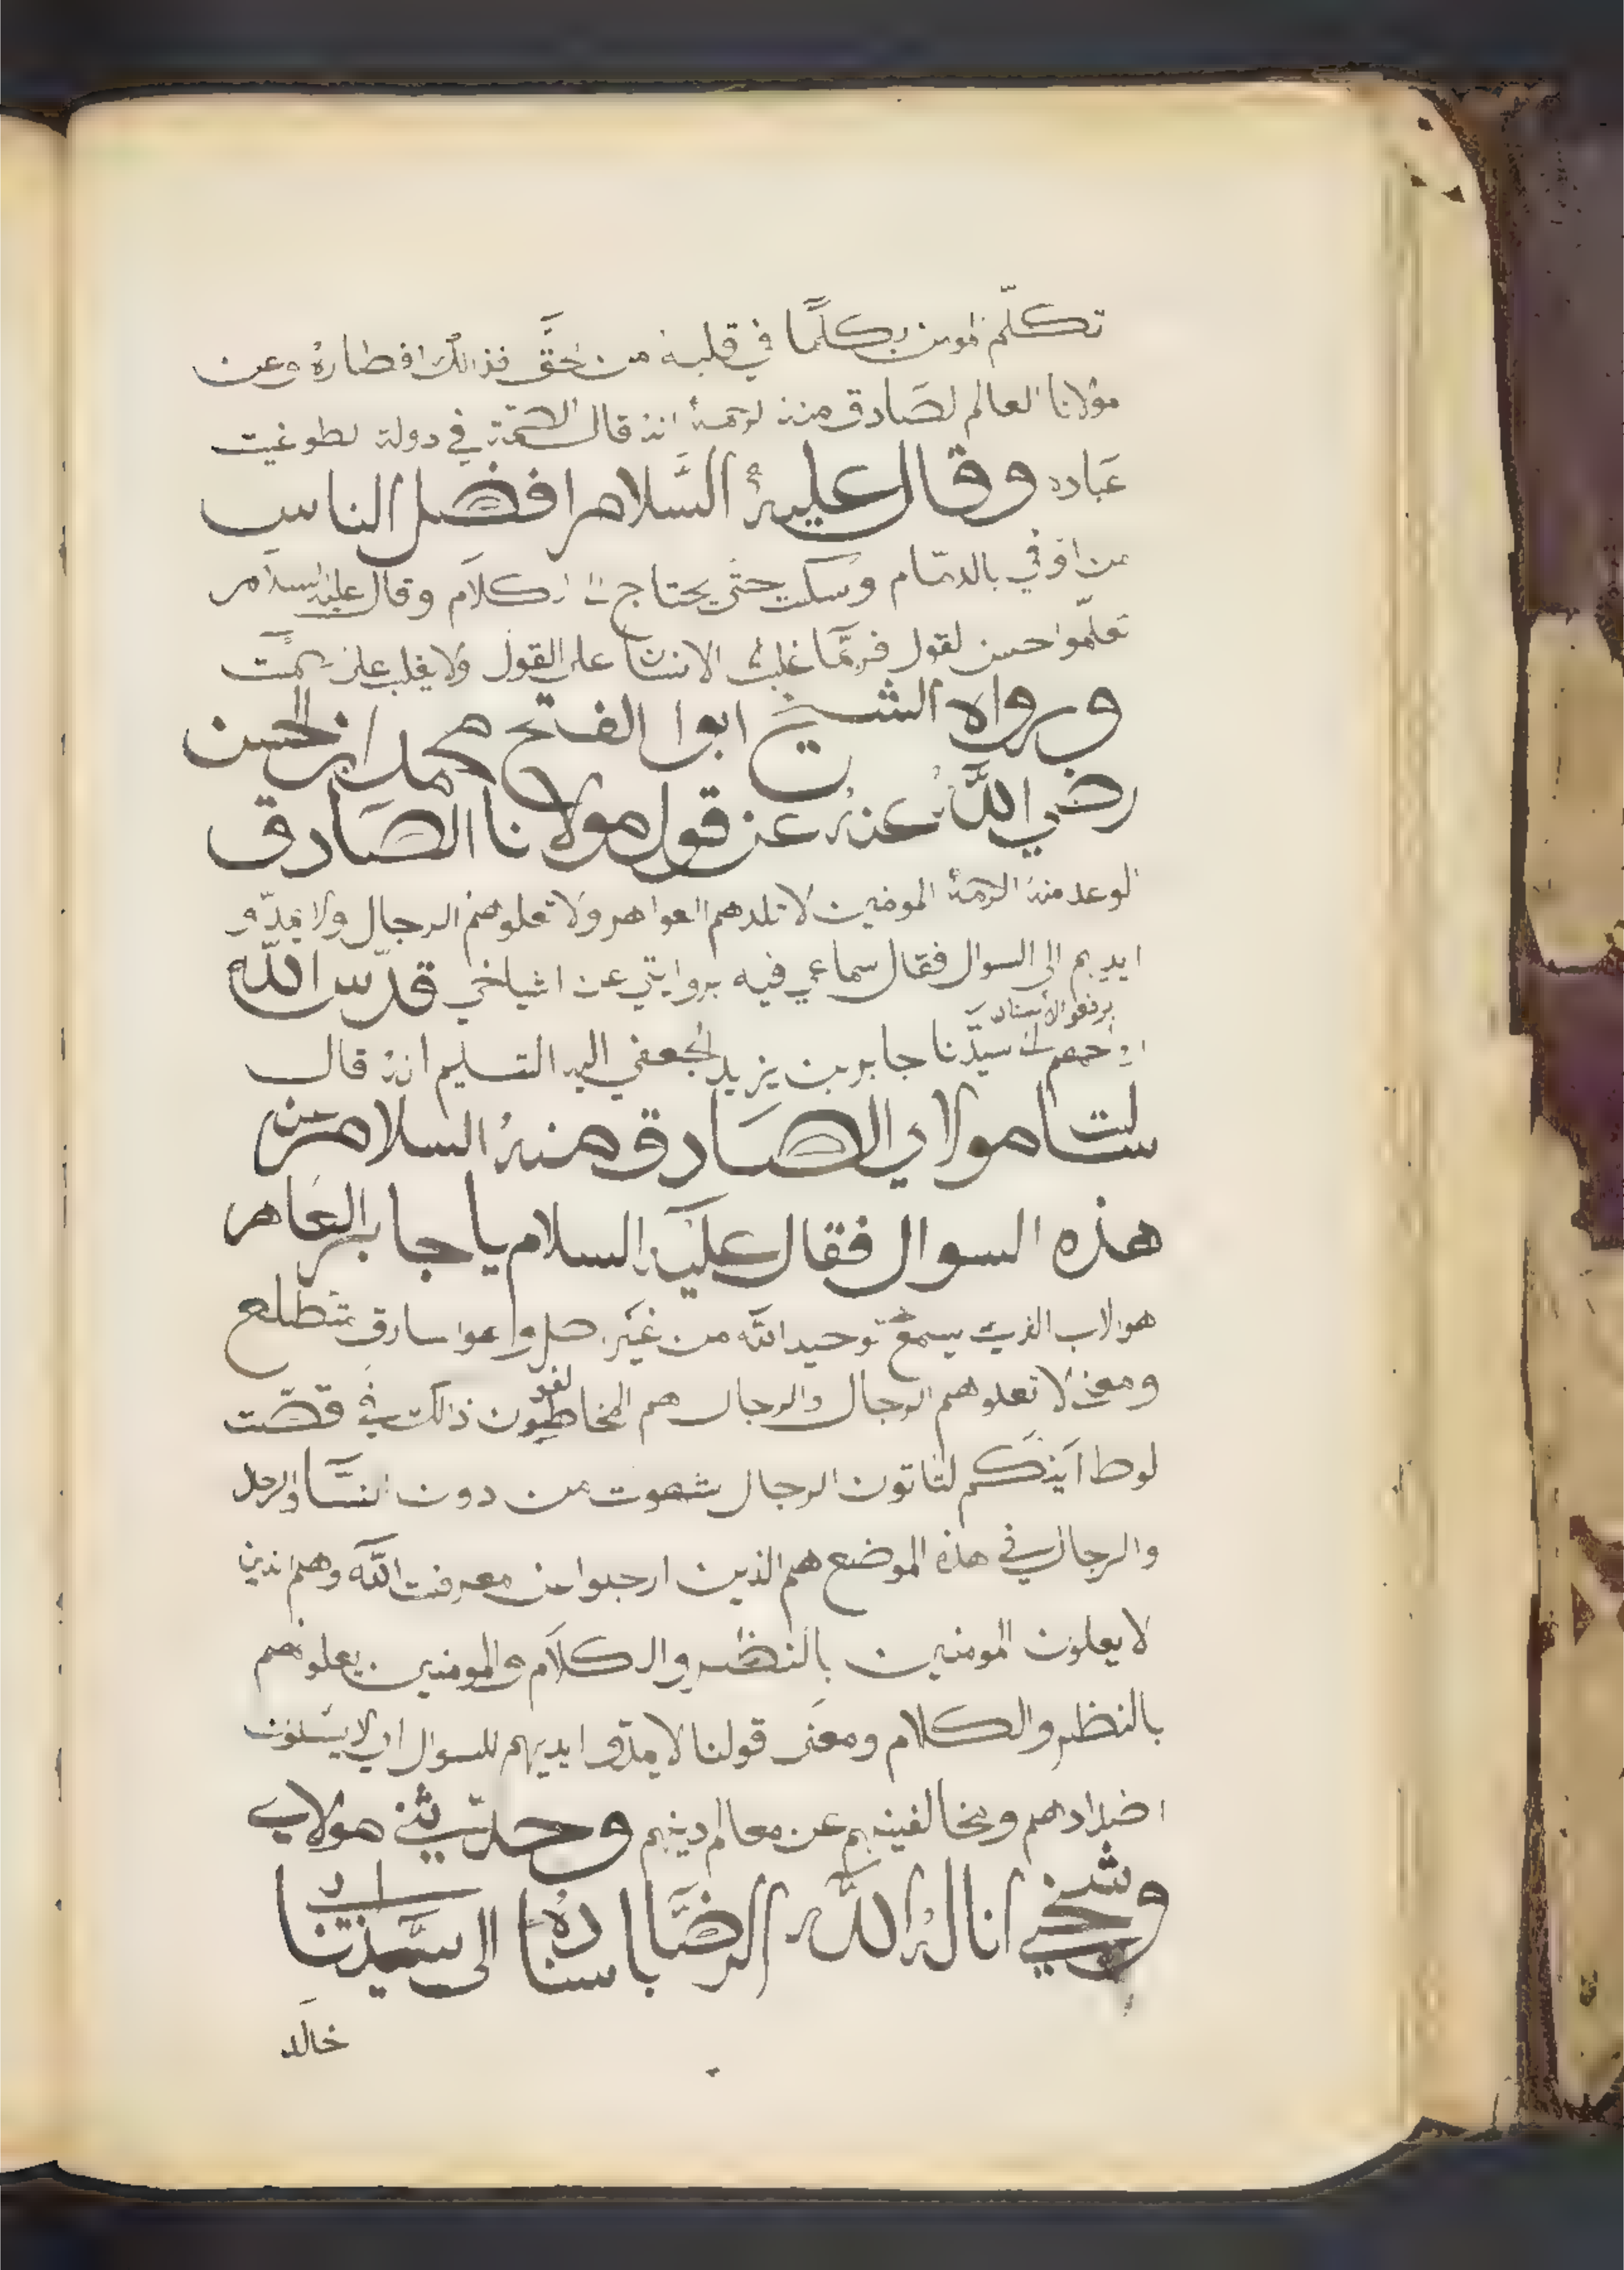 تكلّم المومن بكلّما في قلبه من الحقّ فذالك افطاره وعن
مولانا العالم الصادق منه الرحمة انه قال الصمة في دولة الطوغيت
عباده وقال عليه السّلام افضل الناس
من اوفي بالدمام وسكت حتّى يحتاج الى الكلام وقال عليه السلام
تعلّموا حسن القول فربّما غلب الانسان على القول ولا يغلب على الصمت
ورواه الشيخ ابوا الفتح محمد ابن الحسن
رضي اللّه عنه عن قول مولانا الصّادق
الوعد منه الرحمة المومنين لا تلدهم العواهر ولا تعلوهم الرجال ولا يمدّو
ايديهم الى السوال فقال سماعي فيه بروايتي عن اشياخي قدّس اللّه
ارواحهم يرفعوا الاسناد الى سيدّنا جابر بن يزيد الجعفي اليه التسليم انه قال
سالت مولاي الصّادق منه السلام عن
هذه السوال فقال عليه السلام يا جابر العاهر
هو الاب الذي يسمع توحيد اللّه من غير اهل وهو سارق متطلع
ومعنى لا تعلوهم الرجال والرجال هم المخاطبون لقد ذالك في قصّت
لوط آينكم لتاتون الرجال شهوت من دون النسّا والرجل
والرجال في هذه الموضع هم الذين ارجلوا عن معرفت اللّه وهم الذين
لا يعلون المومنين بالنظر والكلام والمومنين يعلوهم
بالنظر والكلام ومعنى قولنا لا يمدّوا ايديهم للسوال اي لا يسئلون
اضدادهم ومخالفينهم عن معالم دينهم وحدّثني مولاي
وشيخي اناله اللّه الرضّا باسناده الى سيّدنا ابي
خالد